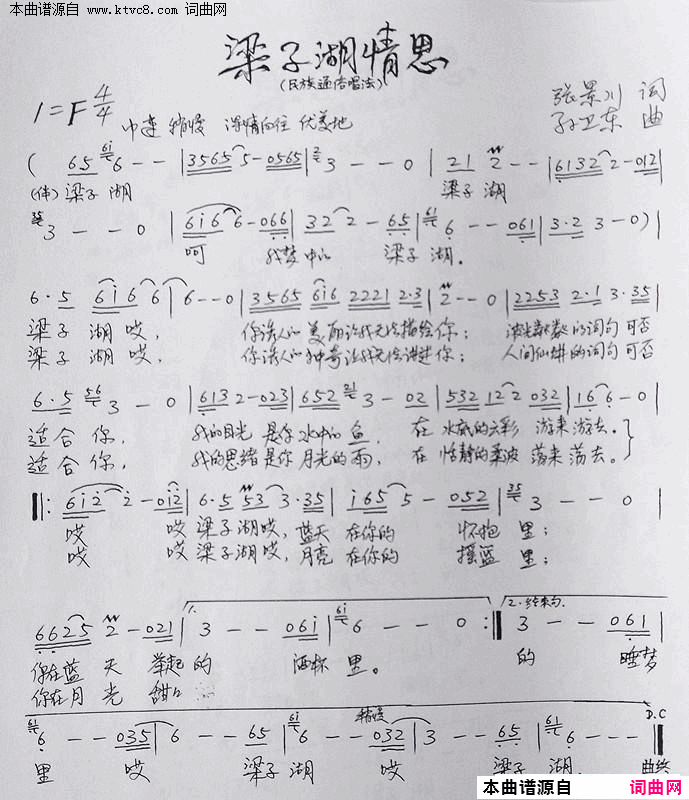 本曲谱源自
www.ktvc8.com 词曲网
梁子湖情思
(民族通俗唱法)
1=F 4/4
中速 稍慢 深情向往 优美地
张景川 词
孙卫东 曲
( 65 6i 6 - - | 3565 5 - 0565 | 2 3 - - 0 | 21 2 - - | 6132 2 - 012 |
(伴) 梁子湖 梁子湖
3 - - 0 | 6i6 6 - 066 | 32 2 - 65 | 61 6 - - 061 | 3·2 3 - 0) |
呵 我梦中的 梁子湖.
6·5 6i6 6 | 6 - - 0 | 3565 6i6 2221 2·3 | 2 - - 0 | 2253 2·1 3·35 |
梁子湖哎, 你诱人的美丽让我无法描绘你; 的词句可否
梁子湖哎, 你诱人的神奇让我无法 你; 人间仙 的词句可否
6·5 56 3 - 0 | 6132 2 - 023 | 652 3 - 02 | 532 12 2 032 | 16 6 - 0 |
适合你, 我的目光是你水中的鱼, 在水底的 游来游去.
适合你, 我的思绪是你月光的雨, 在恬静的柔波荡来荡去。
|: 6i2 2 - 0i2 | 6·5 53 3·35 | i65 5 - 052 | 35 3 - - 0 |
哎 哎梁子湖哎, 蓝天在你的 怀抱里;
哎 哎梁子湖哎, 月亮在你的 摇篮里;
6625 2 - 021 | 1. 3 - - 06i | 6i 6 - - 0 :| 2.结束句. 3 - - 061 |
你在蓝天举起的 酒杯里。 的 睡梦
你在月光甜
61 6 - - 035 | 6 - - 65 | 6i 6 - - 032 | 3 - - 65 | 61 6 - - - |
稍慢
D.C
里 哎 梁子湖 哎 梁子湖. 曲终
本曲谱源自 词曲网